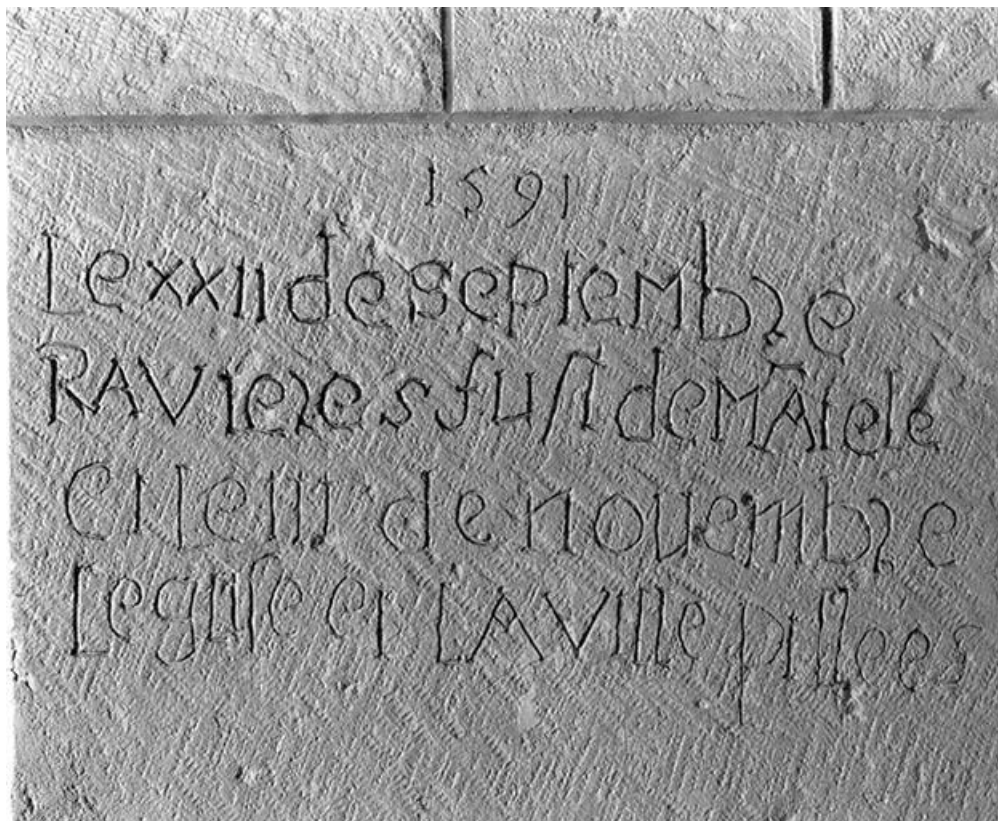 1591
Le xxii de septembre
RAVieres fuſt deMÃtele
et le iii de nouembre
Legliſe et LAVille pillees